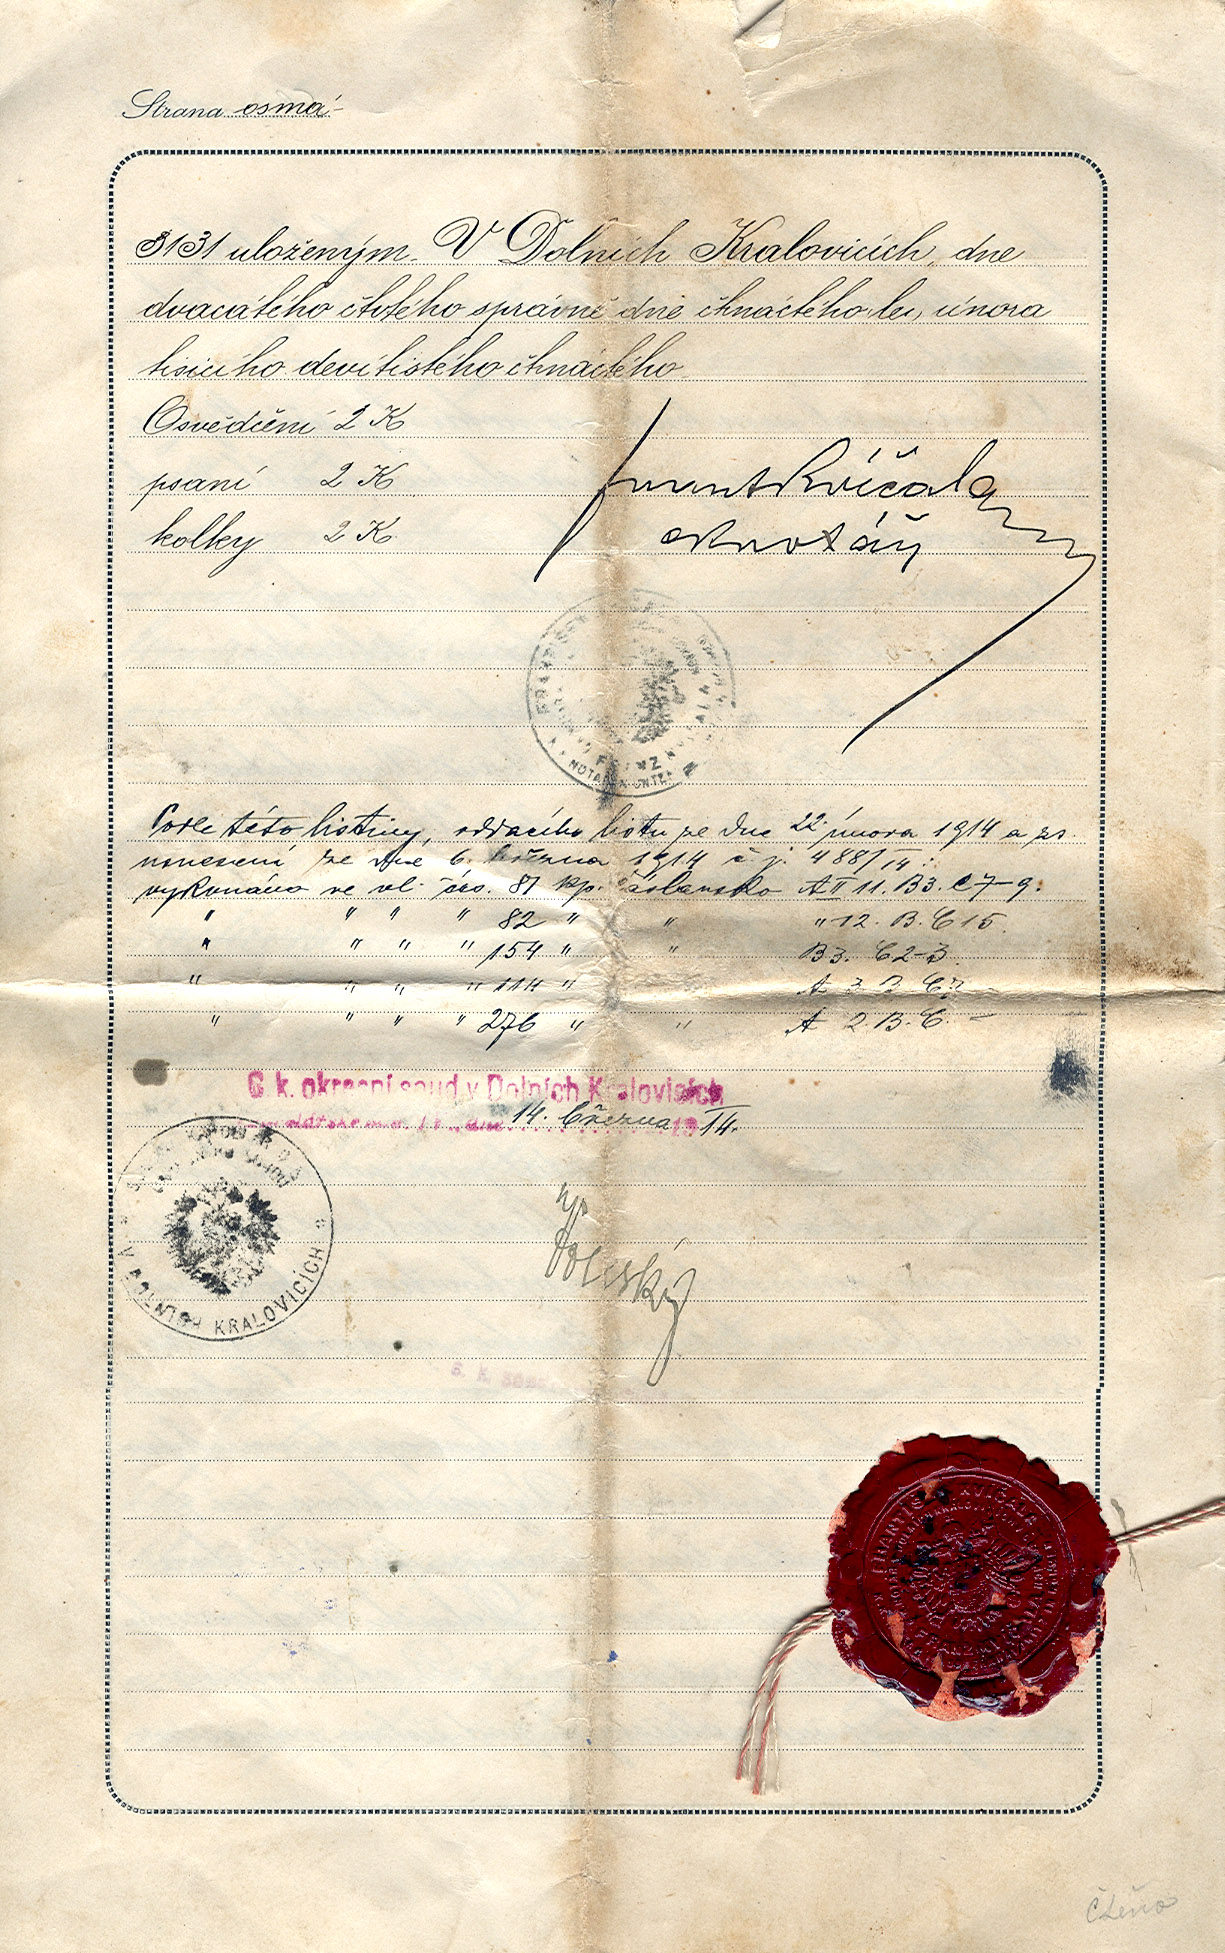 Strana osmá
3131 uloženým. V Dolních Kralovicích, dne
dvacátého čtvrtého správně dne čtrnáctého února
tisícího devítistého čtrnáctého
Osvědčení 2 K
psaní 2 K
kolky 2 K
kvíčala
notář
Podle této listiny, oddacího listu ze dne 22. února 1914 a
usnesení ze dne 6. března 1914 č. j. 488/14:
vykonáno ve vl. čís. 81 kp. Čáslavsko A II 11. B3. C7-9.
" " " " 82 " " " 12. B. C 15.
" " " " 154 " " B3. C2-3.
" " " " 114 "
" " " " 276 " " A 2. B. C. –
C. k. okresní soud v Dolních Kralovicích
14. března 1914.
V DOLNÍCH KRALOVICÍCH